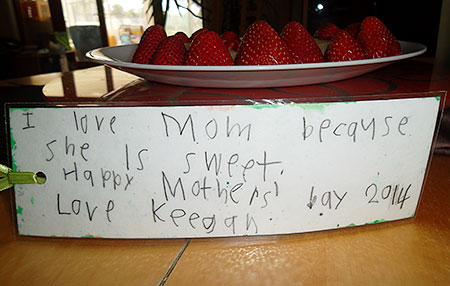 I love Mom because
she is sweet.
Happy Mothers' Day 2014
Love Keegan